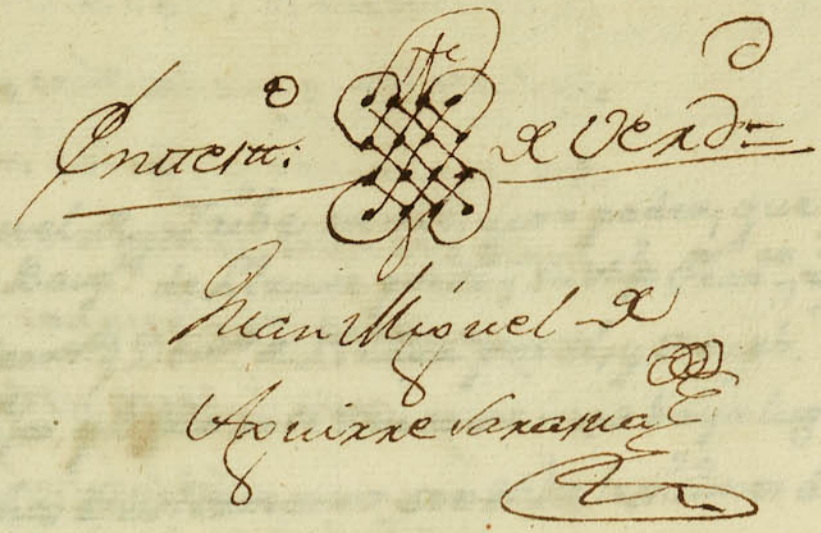 En testi.º de verd.d
Juan Miguel de
Aguirre Sarasua